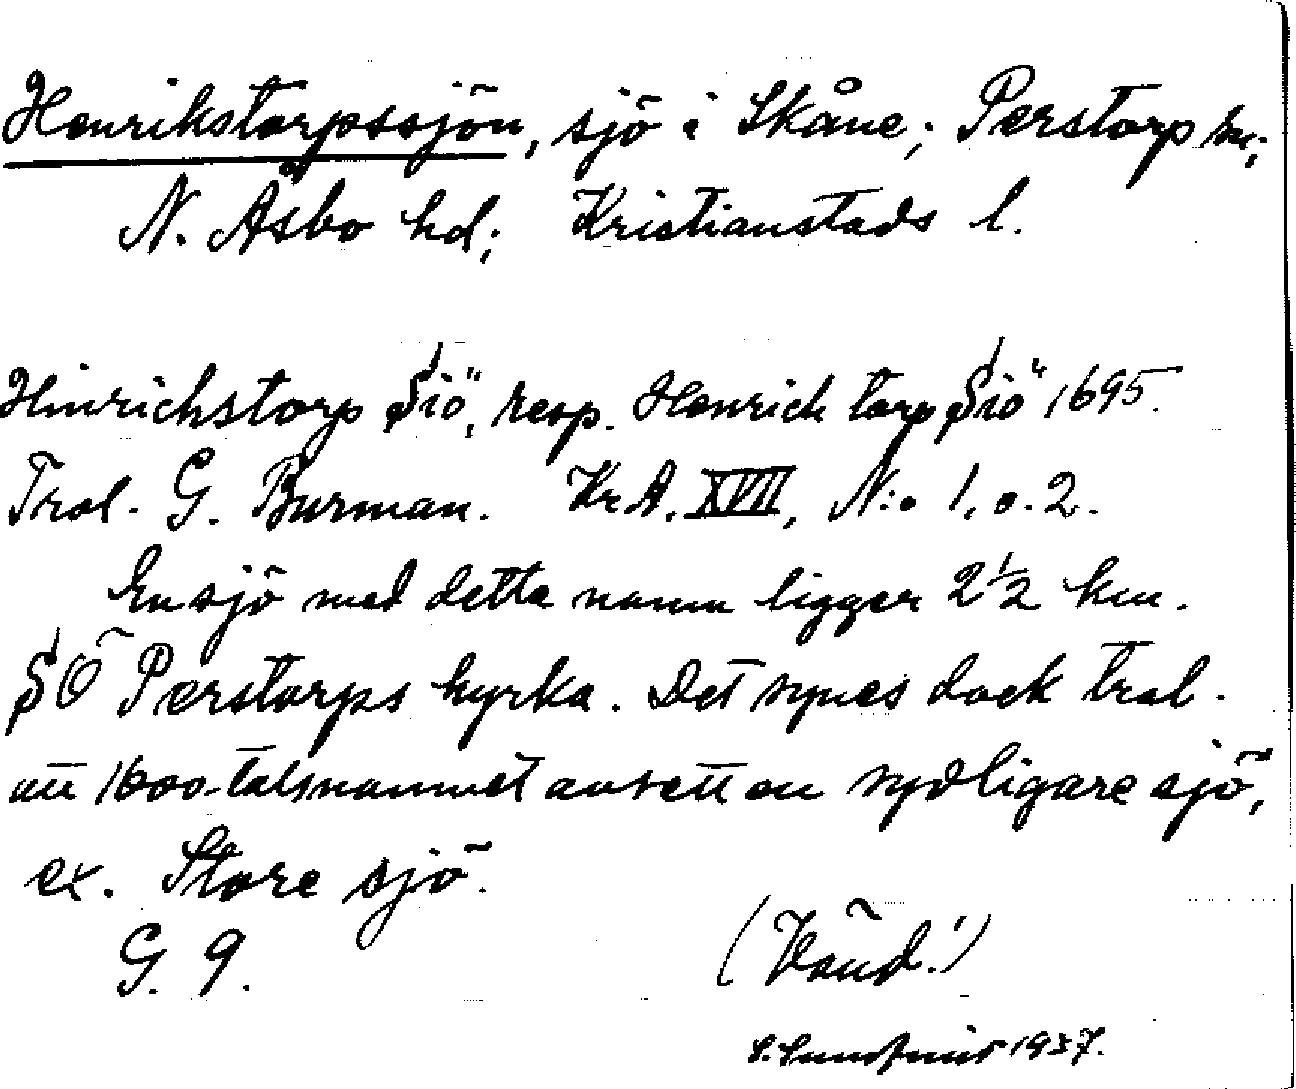 Henrikstorpssjön, sjö i Skåne; Perstorp sn;
N. Åsbo hd; Kristianstads l.
Hinrichstorp Siö, resp. Henrich torp Siö 1695.
Trol. G. Burman. Kr.A. XVII, N:o 1. o. 2.
En sjö med detta namn ligger 2 1/2 km.
SÖ Perstorps kyrka. Det synes dock trol.
att 1600-talsnamnet avsett en sydligare sjö,
ex. Store sjö.
G. 9.
(Vänd!)
1937.